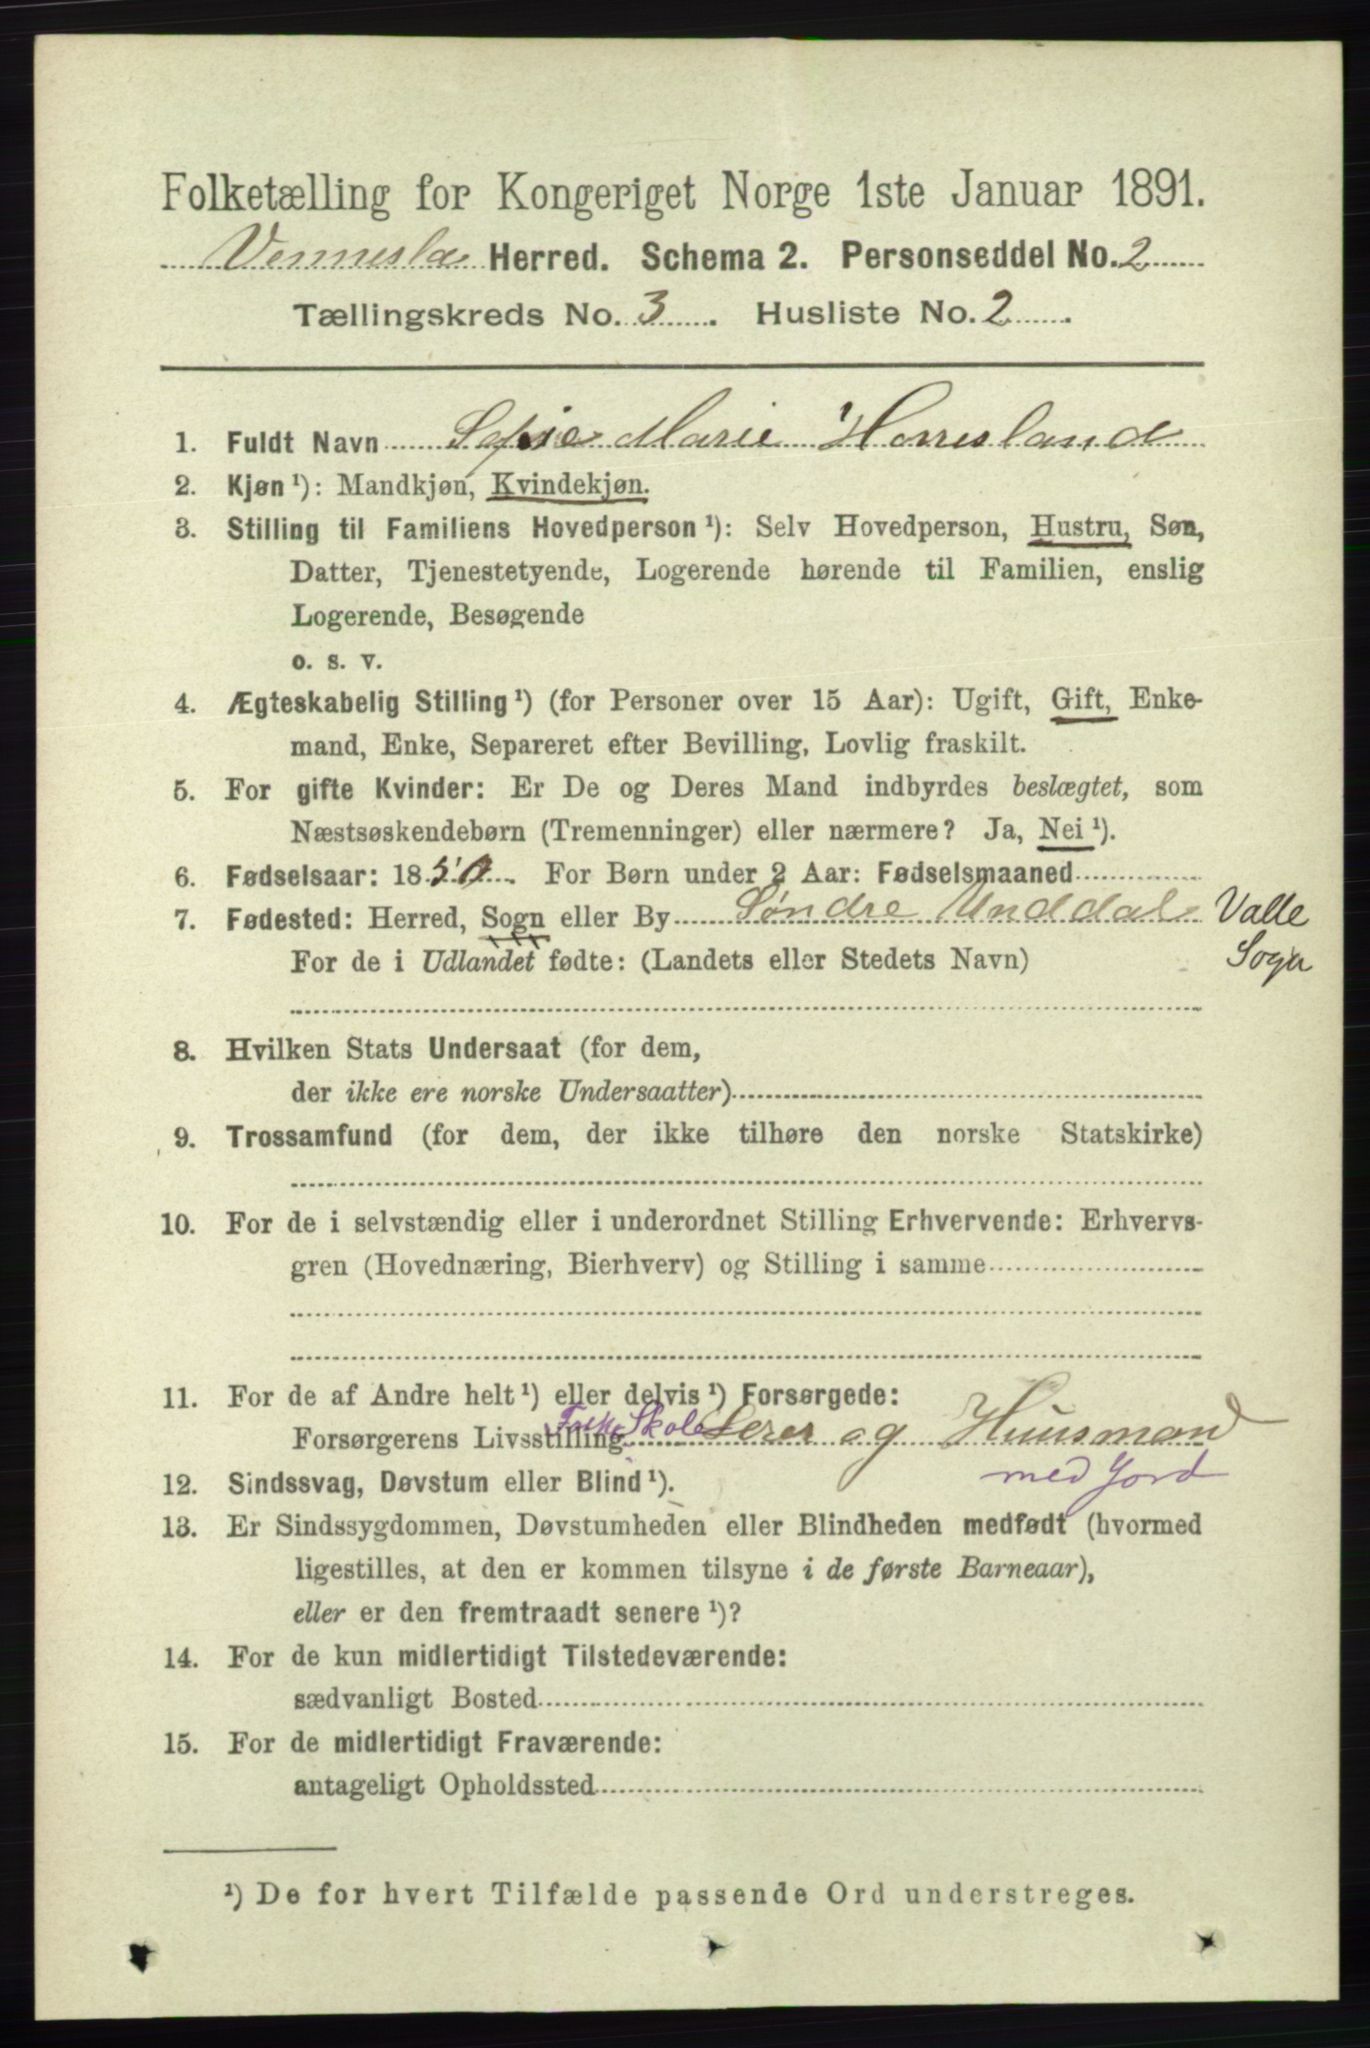 Folketælling for Kongeriget Norge 1ste Januar 1891.
Vennesla Herred. Schema 2. Personseddel No. 2
Tællingskreds No. 3. Husliste No. 2.
1. Fuldt Navn Sofie Marie Horrisland
2. Kjøn ¹): Mandkjøn, Kvindekjøn.
3. Stilling til Familiens Hovedperson ¹): Selv Hovedperson, Hustru, Søn,
Datter, Tjenestetyende, Logerende hørende til Familien, enslig
Logerende, Besøgende
o. s. v.
4. Ægteskabelig Stilling ¹) (for Personer over 15 Aar): Ugift, Gift, Enke-
mand, Enke, Separeret efter Bevilling, Lovlig fraskilt.
5. For gifte Kvinder: Er De og Deres Mand indbyrdes beslægtet, som
Næstsøskendebørn (Tremenninger) eller nærmere? Ja, Nei ¹).
6. Fødselsaar: 1850. For Børn under 2 Aar: Fødselsmaaned
7. Fødested: Herred, Sogn eller By Søndre Unddal Valle
Sogn
For de i Udlandet fødte: (Landets eller Stedets Navn)
8. Hvilken Stats Undersaat (for dem,
der ikke ere norske Undersaatter)
9. Trossamfund (for dem, der ikke tilhøre den norske Statskirke)
10. For de i selvstændig eller i underordnet Stilling Erhvervende: Erhvervs-
gren (Hovednæring, Bierhverv) og Stilling i samme
11. For de af Andre helt ¹) eller delvis ¹) Forsørgede:
Forsørgerens Livsstilling Folke Skole Lerer og Huusmand
med Jord
12. Sindssvag, Døvstum eller Blind ¹).
13. Er Sindssygdommen, Døvstumheden eller Blindheden medfødt (hvormed
ligestilles, at den er kommen tilsyne i de første Barneaar),
eller er den fremtraadt senere ¹)?
14. For de kun midlertidigt Tilstedeværende:
sædvanligt Bosted
15. For de midlertidigt Fraværende:
antageligt Opholdssted
¹) De for hvert Tilfælde passende Ord understreges.